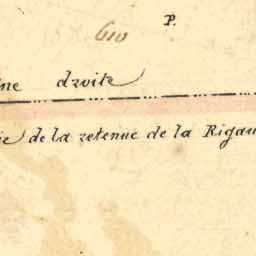 P.
610
ne droite
ie de la retenue de la Rigau